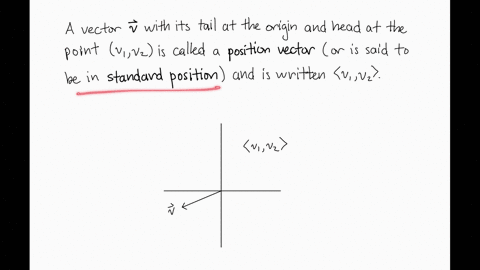 A vector v⃗ with its tail at the origin and head at the
point (v₁,v₂) is called a position vector (or is said to
be in standard position) and is written ⟨v₁,v₂⟩.
⟨v₁,v₂⟩
v⃗